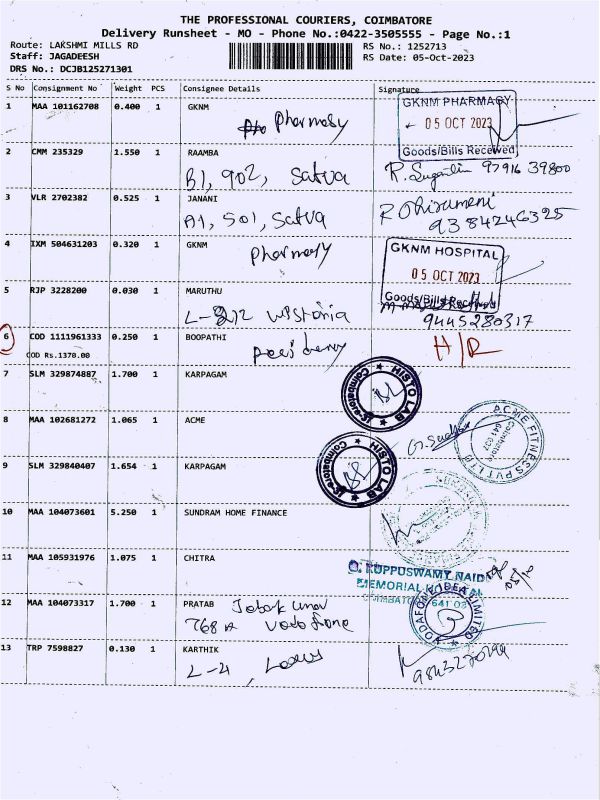 THE PROFESSIONAL COURIERS, COIMBATORE
Delivery Runsheet - MO - Phone No.:0422-3505555 - Page No.:1
Route: LAKSHMI MILLS RD
RS No.: 1252713
Staff: JAGADEESH
RS Date: 05-Oct-2023
DRS No.: DCJB125271301
S No Consignment No Weight PCS Consignee Details Signature
1 MAA 101162708 0.400 1 GKNM
Pharmasy
GKNM PHARMACY
05 OCT 2023
Goods/Bills Received
2 CMM 235329 1.550 1 RAAMBA
B1, 902, Satva
97916 39800
3 VLR 2702382 0.525 1 JANANI
A1, 501, Satva
9384246325
4 IXM 504631203 0.320 1 GKNM
Pharmasy
GKNM HOSPITAL
05 OCT 2023
Goods/Bills Received
5 RJP 3228200 0.030 1 MARUTHU
9445280317
6 COD 1111961333 0.250 1 BOOPATHI
COD Rs.1378.00
H/R
7 SLM 329874887 1.700 1 KARPAGAM
HISTO LAB
Coimbatore
8 MAA 102681272 1.065 1 ACME
ACME FITNESS PVT LTD
Coimbatore
641 037
9 SLM 329840407 1.654 1 KARPAGAM
HISTO LAB
Coimbatore
10 MAA 104073601 5.250 1 SUNDRAM HOME FINANCE
11 MAA 105931976 1.075 1 CHITRA
G. KUPPUSWAMY NAIDU
MEMORIAL HOSPITAL
12 MAA 104073317 1.700 1 PRATAB
768 A Vodofone
VODAFONE IDEA LIMITED
13 TRP 7598827 0.130 1 KARTHIK
L-4,